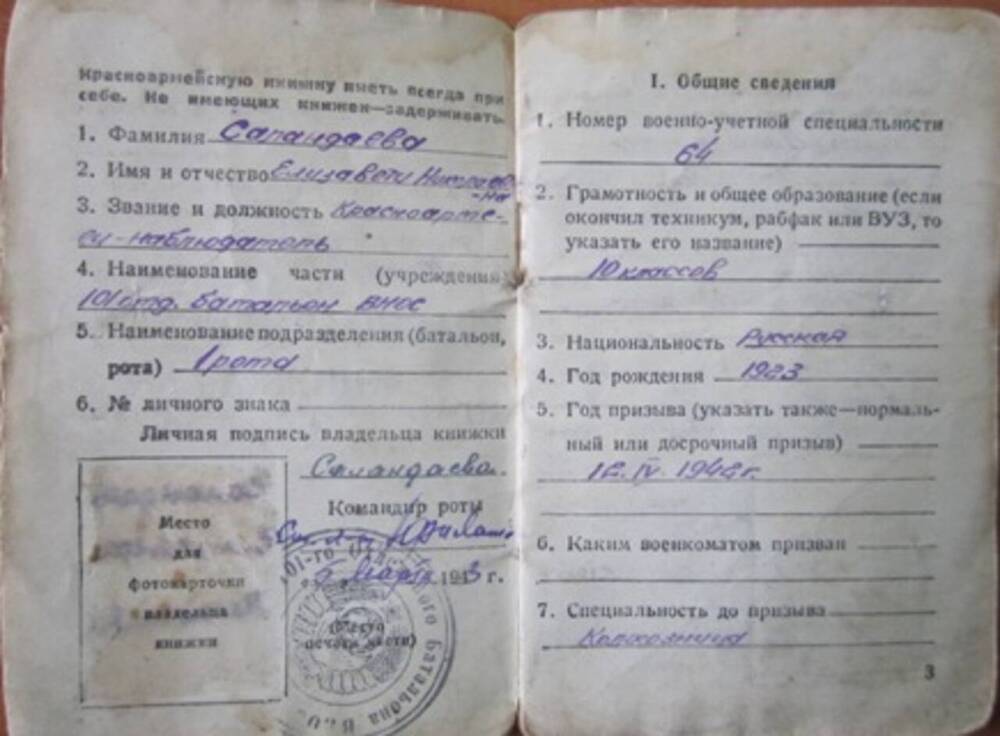 Красноармейскую книжку иметь всегда при
себе. Не имеющих книжек—задерживать.
1. Фамилия Саландаева
2. Имя и отчество Елизавета Николаев
-на
3. Звание и должность Красноарме-
ец-наблюдатель
4. Наименование части (учреждения)
101 отд. батальон ВНОС
5. Наименование подразделения (батальон,
рота) 1 рота
6. № личного знака
Личная подпись владельца книжки
Саландаева.
Командир роты
5 Марта 1943 г.
Место
для
фотокарточки
владельца
книжки
(место
печати части)
101-го батальона ВНОС
I. Общие сведения
1. Номер военно-учетной специальности
64
2. Грамотность и общее образование (если
окончил техникум, рабфак или ВУЗ, то
указать его название)
10 классов
3. Национальность Русская
4. Год рождения 1923
5. Год призыва (указать также—нормаль-
ный или досрочный призыв)
12.IV.1942г.
6. Каким военкоматом призван
7. Специальность до призыва
Колхозница
3